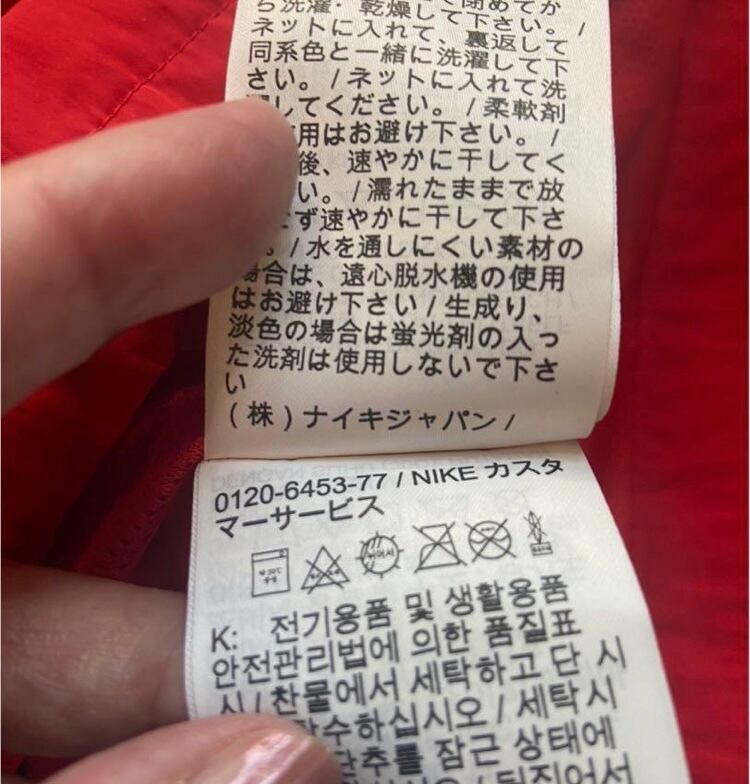 閉めてか
ら洗濯・乾燥して下さい。/
ネットに入れて、裏返して
同系色と一緒に洗濯して下
さい。/ネットに入れて洗
してください。/柔軟剤
用はお避け下さい。/
後、速やかに干してく
い。/濡れたままで放
ず速やかに干して下さ
。/水を通しにくい素材の
場合は、遠心脱水機の使用
はお避け下さい/生成り、
淡色の場合は蛍光剤の入っ
た洗剤は使用しないで下さ
い
(株)ナイキジャパン/
0120-6453-77 / NIKE カスタ
マーサービス
K: 전기용품 및 생활용품
안전관리법에 의한 품질표
시/찬물에서 세탁하고 단 시
탈수하십시오/세탁시
단추를 잠근 상태에